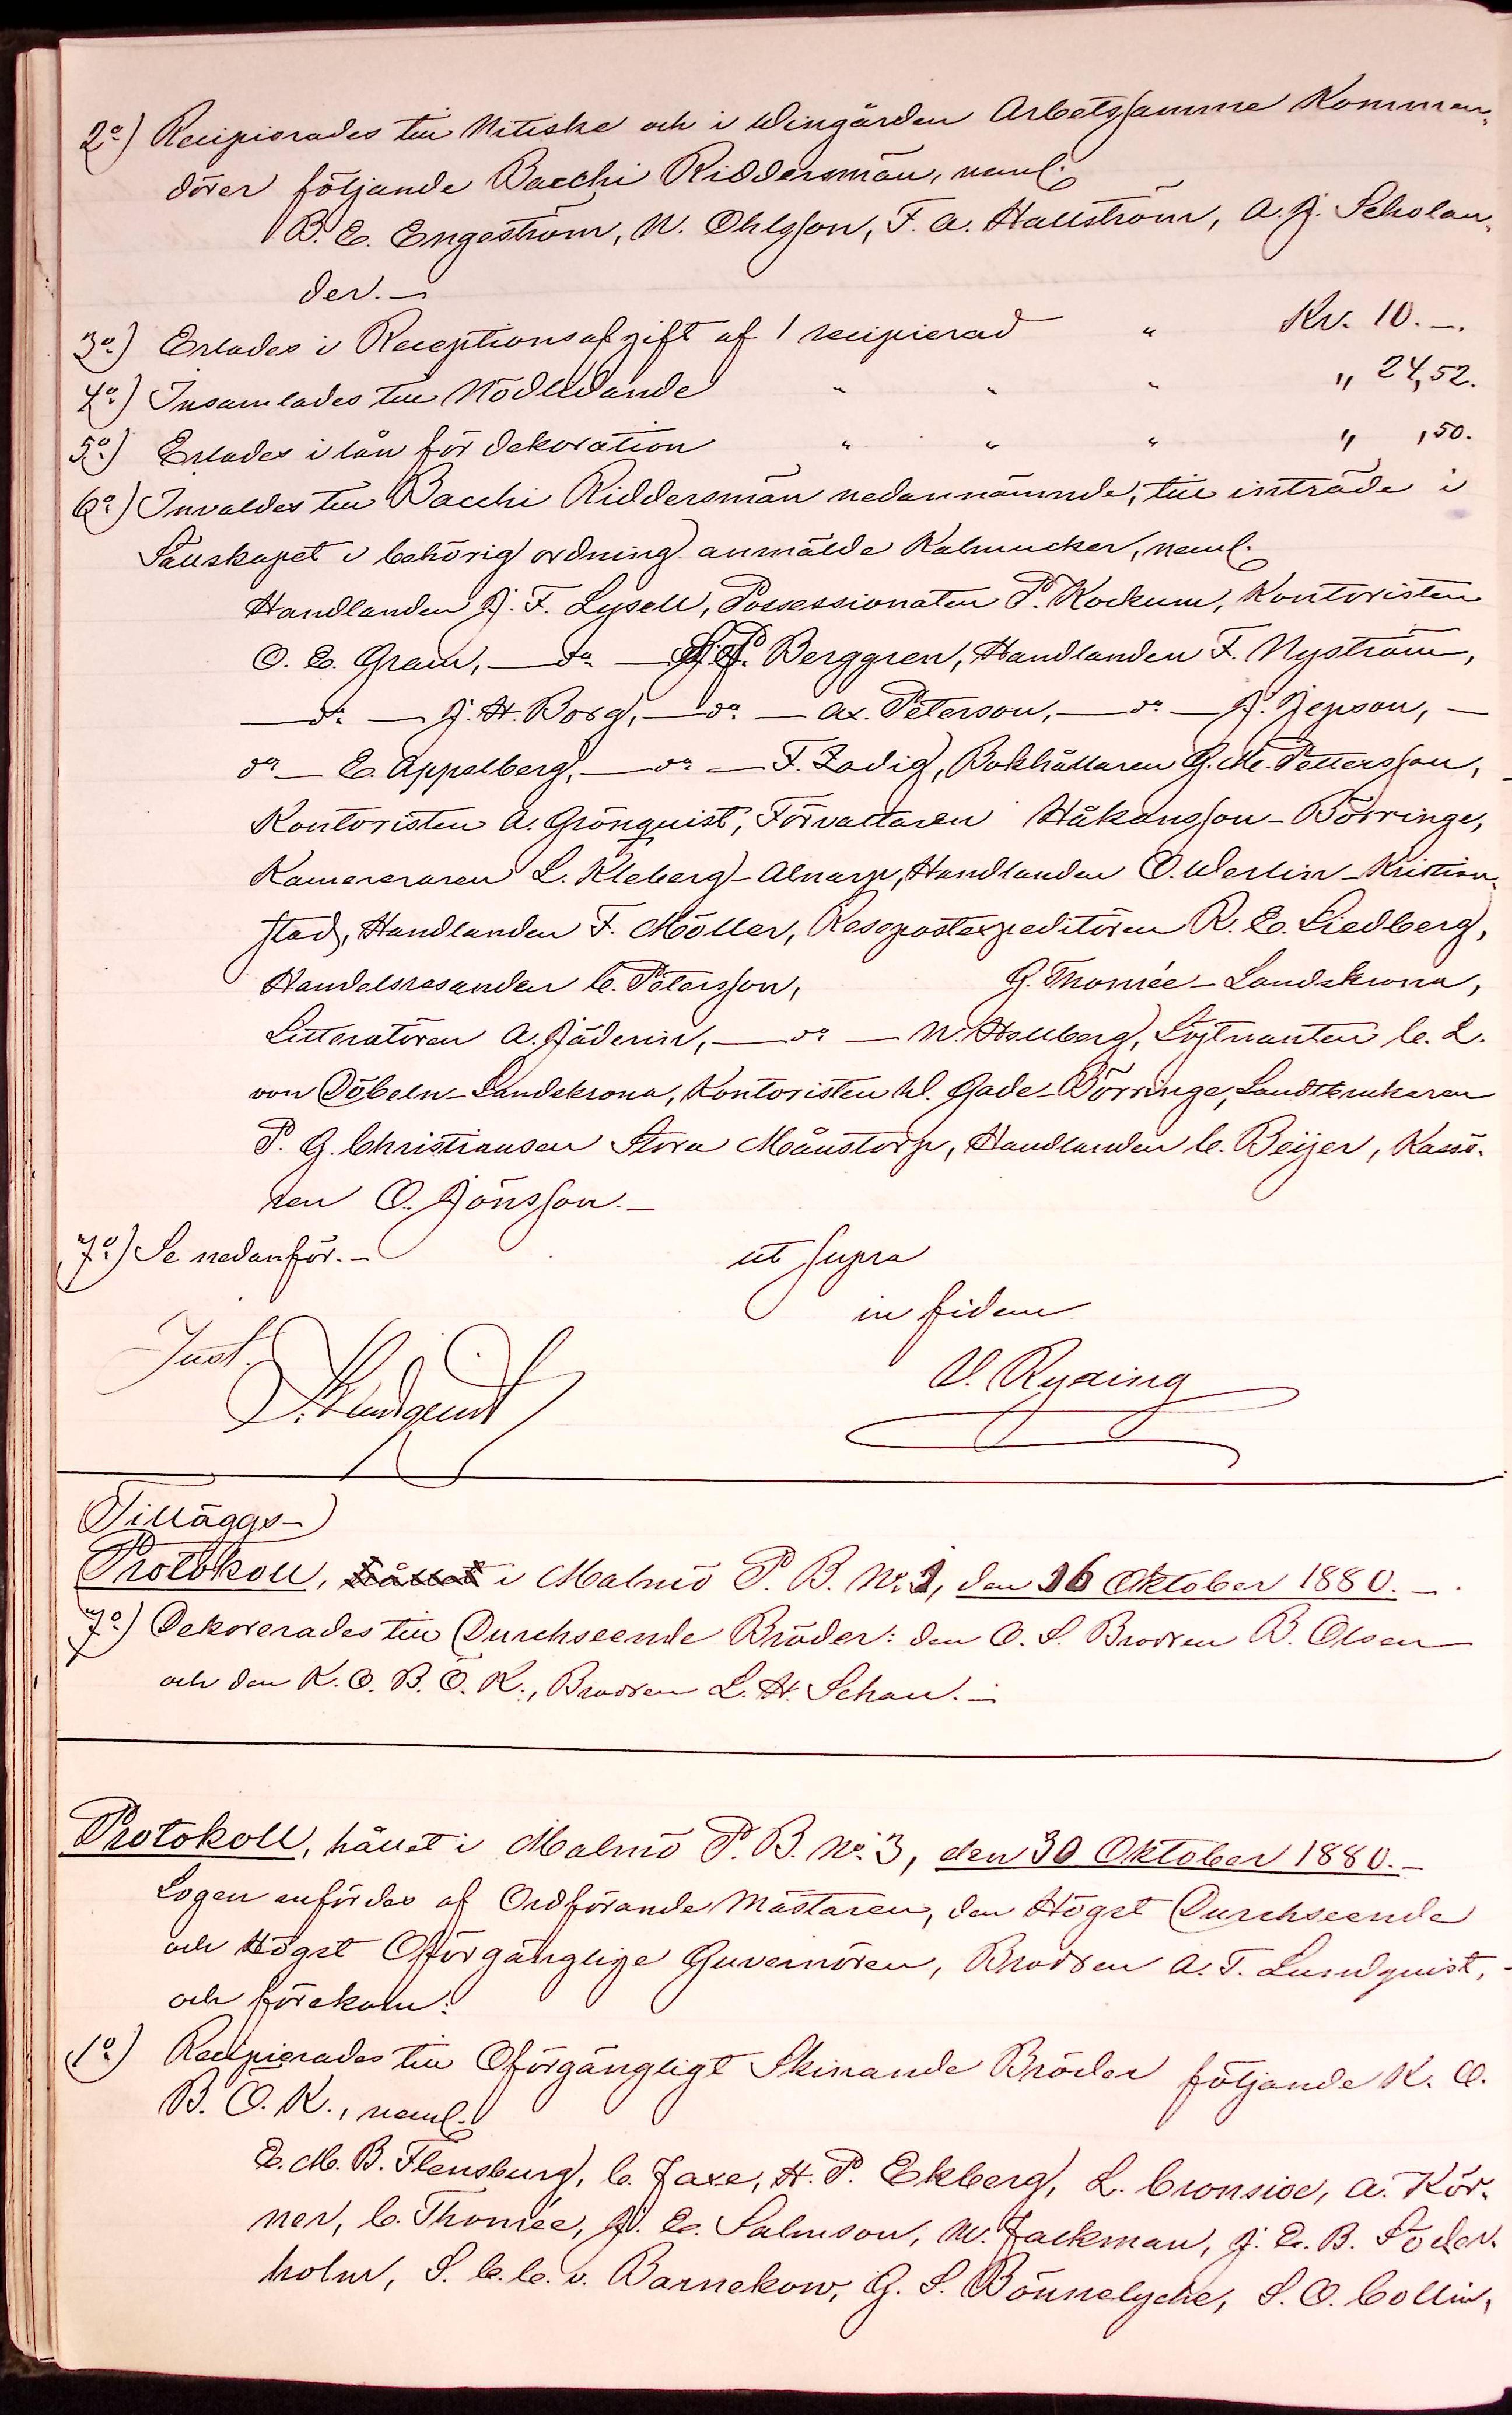 2:o) Recipierades till Nitiske och i Wingården Arbetssamme Kommen-
dörer följande Bacchi Riddersmän, neml.
B. E. Engeström, N. Ohlsson, F. A. Hallström, A. J. Scholan-
der. —
3:o) Erlades i Receptionsafgift af 1 recipierad " Kr. 10. —.
4:o) Insamlades till Nödlidande " " " " 24,52.
5:o) Erlades i lån för dekoration " " " " ,50.
6:o) Invaldes till Bacchi Riddersmän nedannämnde, till inträde i
Sällskapet i behörig ordning anmälde Kalmucker, neml.
Handlanden J. F. Lysell, Possessionaten P. Kockum, Kontoristen
O. E. Gram, — d:o — Berggren, Handlanden F. Nyström,
— d:o — J. H. Borg, — d:o — Ax. Peterson, — d:o — J. Jepson, —
d:o — E. Appelberg, — d:o — F. Zadig, Bokhållaren G. M. Pettersson,
Kontoristen A. Grönquist, Förvaltaren Håkansson - Börringe,
Kamereraren L. Kleberg - Alnarp, Handlanden O. Werlin - Kristian-
stad, Handlanden F. Möller, Resepostexpeditören R. E. Liedberg,
Handelsresanden C. Petersson, G. Thomée - Landskrona,
Litteratören A. Jäderin, — d:o — N. Hallberg, Löjtnanten C. L.
von Döbeln - Landskrona, Kontoristen W. Gade - Börringe, Landtbrukaren
P. G. Christiansen Stora Månstorp, Handlanden C. Beijer, Kassö-
ren O. Jönsson. —
7:o) Se nedanför. — ut supra
in fidem
Just. V. Ryding
Lundquist
Tilläggs-
Protokoll, hållet i Malmö P. B. No: 2, den 16 Oktober 1880. —
7:o) Dekorerades till Durchseende Bröder: den O. S. Brodren B. Olsen
och den K. O. B. Ö. K., Brodren L. H. Schau. —
Protokoll, hållet i Malmö P. B. No: 3, den 30 Oktober 1880. —
Logen anfördes af Ordförande Mästaren, den Högst Durchseende
och Högst Oförgänglige Guvernören, Brodren A. T. Lundquist,
och förekom:
1:o) Recipierades till Oförgängligt Skinande Bröder följande K. O.
B. Ö. K., neml.
E. M. B. Flensburg, C. Faxe, H. P. Ekberg, L. Cronsioe, A. Kör-
ner, C. Thomée, J. E. Salmson, W. Fackman, J. E. B. Söder-
holm, S. C. C. v. Barnekow, G. S. Bönnelyche, S. O. Collin,